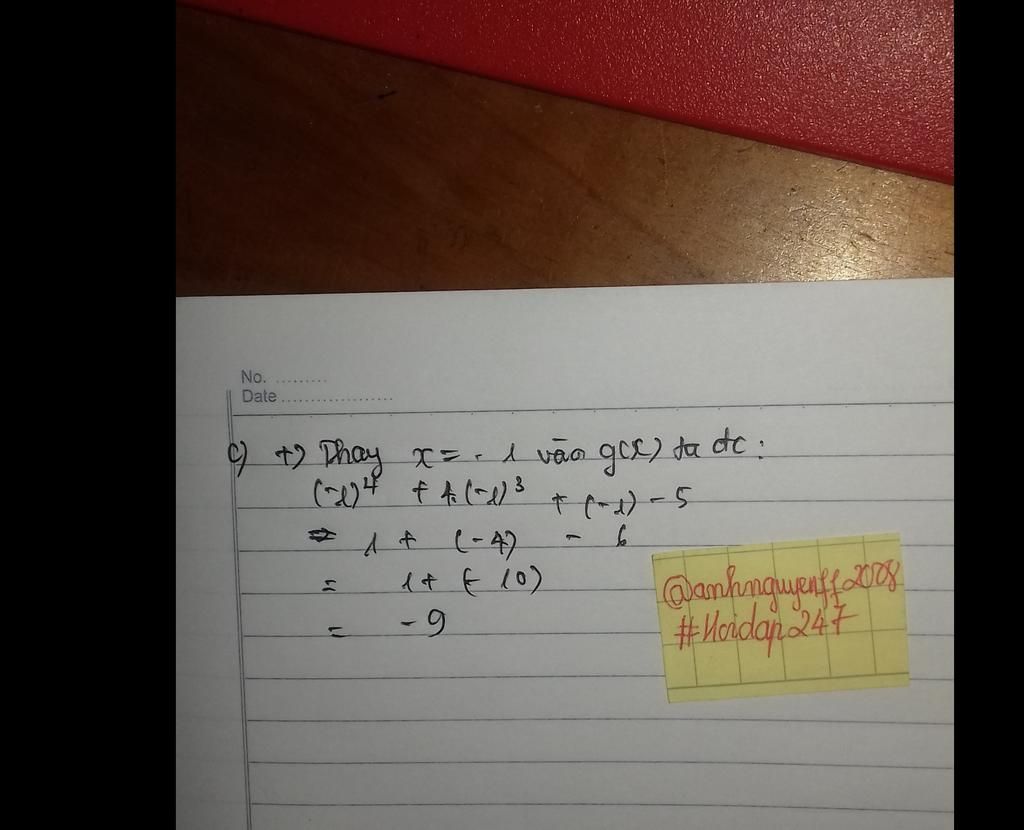 No. .........
Date ...................
c) +) Thay x = -1 vào g(x) ta dc:
(-1)⁴ + 4.(-1)³ + (-1) - 5
= 1 + (-4) - 6
= 1 + (-10)
= -9
@anhnguyenff2008
#Hoidap247